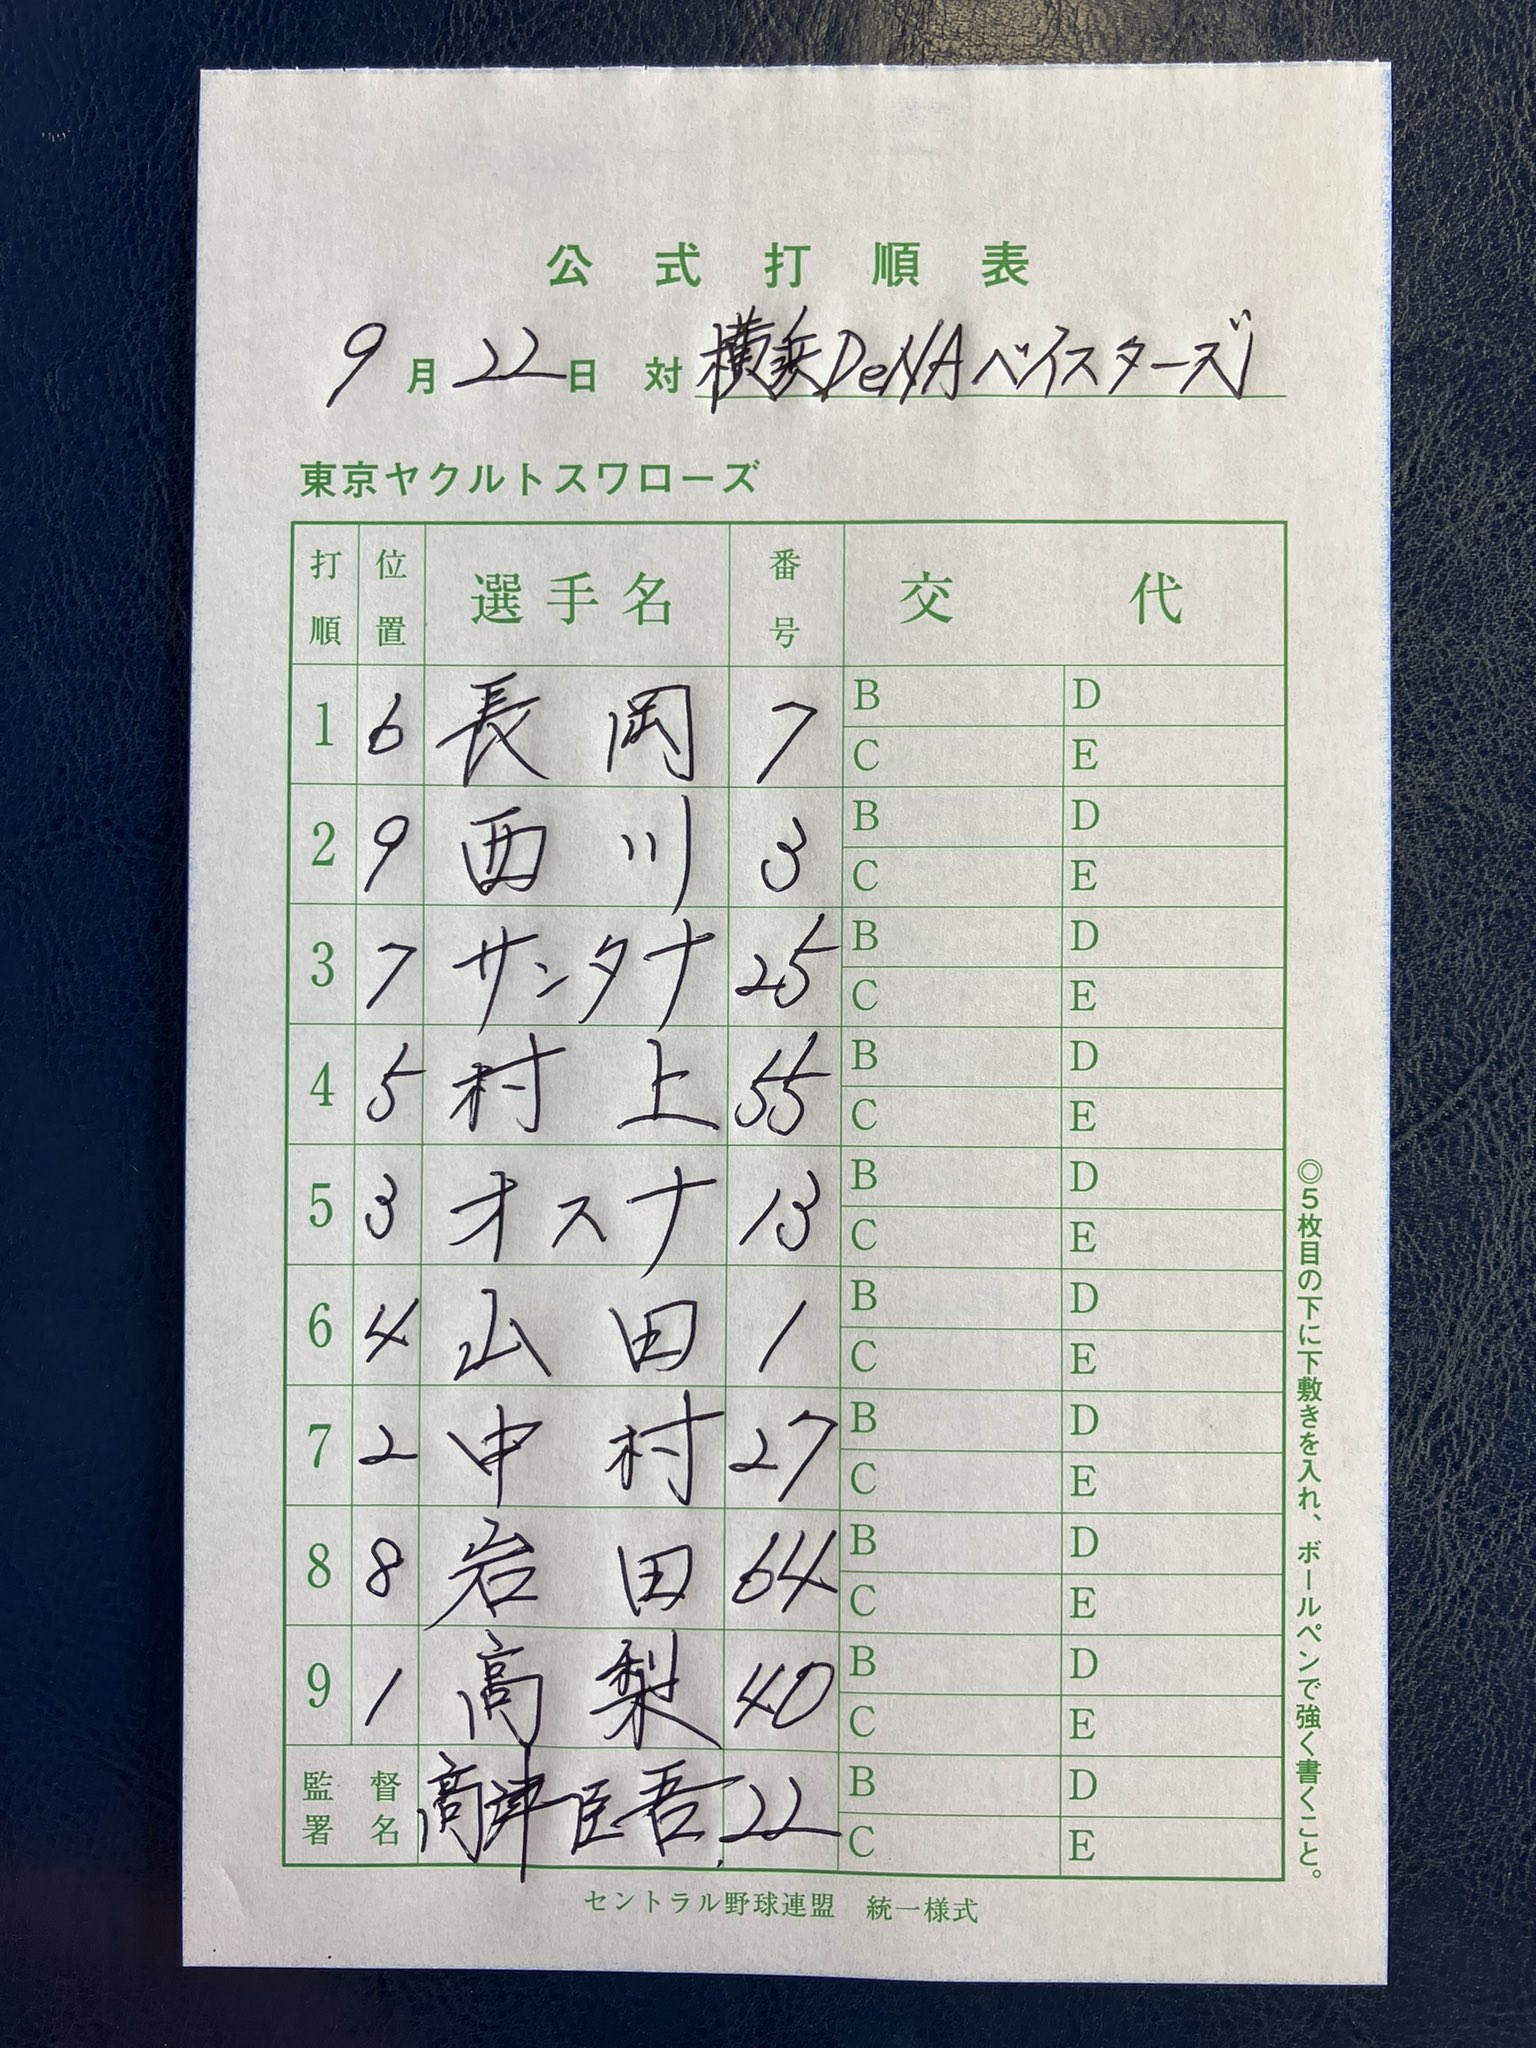 公式打順表
9月22日 対 横浜DeNAベイスターズ
東京ヤクルトスワローズ
打順 位置 選手名 番号 交代
1 6 長岡 7 B D C E
2 9 西川 3 B D C E
3 7 サンタナ 25 B D C E
4 5 村上 55 B D C E
5 3 オスナ 13 B D C E
6 4 山田 1 B D C E
7 2 中村 27 B D C E
8 8 岩田 64 B D C E
9 1 高梨 40 B D C E
監督署名 高津臣吾 22 B D C E
セントラル野球連盟 統一様式
◎5枚目の下に下敷きを入れ、ボールペンで強く書くこと。